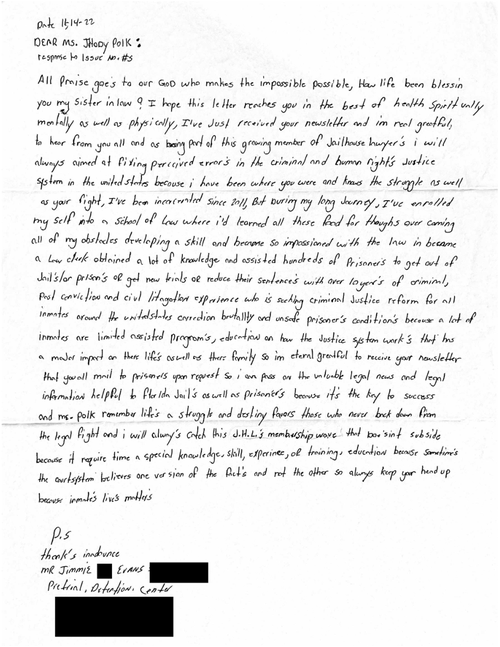 Date 11-14-22
DEAR MS. JHody Polk:
response to Issue No. #5
All Praise goe's to our GOD who makes the impossible possible, How life been blessin
you my sister in law? I hope this letter reaches you in the best of health Spiritually
mentally as well as physically, I've Just received your newsletter and im real greatful,
to hear from you all and as being part of this growing member of Jailhouse lawyer's i will
always aimed at fixing perceived error's in the criminal and human right's Justice
system in the united states because i have been where you were and knows the struggle as well
as your fight, I've been incarcerated since 2011, But during my long Journey, I've enrolled
my self into a School of Law where i'd learned all these food for thoughs over coming
all of my obstacles developing a skill and become so impassioned with the law in became
a Law clerk obtained a lot of knowledge and assisted hundreds of Prisoner's to get out of
Jails/or prison's or get new trials or reduce their sentence's with over 10 year's of criminal,
Post Conviction and civil litagation experience who is seeking criminal Justice reform for all
inmates around the unitedstates correction brutallity and unsafe prisoner's condition's because a lot of
inmates are limited assisted program's, education on how the Justice system work's that has
a major impact on there life's as well as there family so im eternal greatful to receive your newsletter
that you all mail to prisoners upon request so i can pass on the valuable legal news and legal
information helpful to Florida Jail's as well as prisoner's because it's the key to success
and ms. Polk remember life's a struggle and destiny favors those who never back down from
the legal fight and i will alway's catch this J.H.L's membership wave that doe'sint subside
because it require time a special knowledge, skill, experience, or training, education because sometime's
the courtsystem believes one version of the fact's and not the other so always keep your head up
because inmate's live's matter's
P.S
thank's inadvance
MR Jimmie Evans
Pretrial, Detention, Center